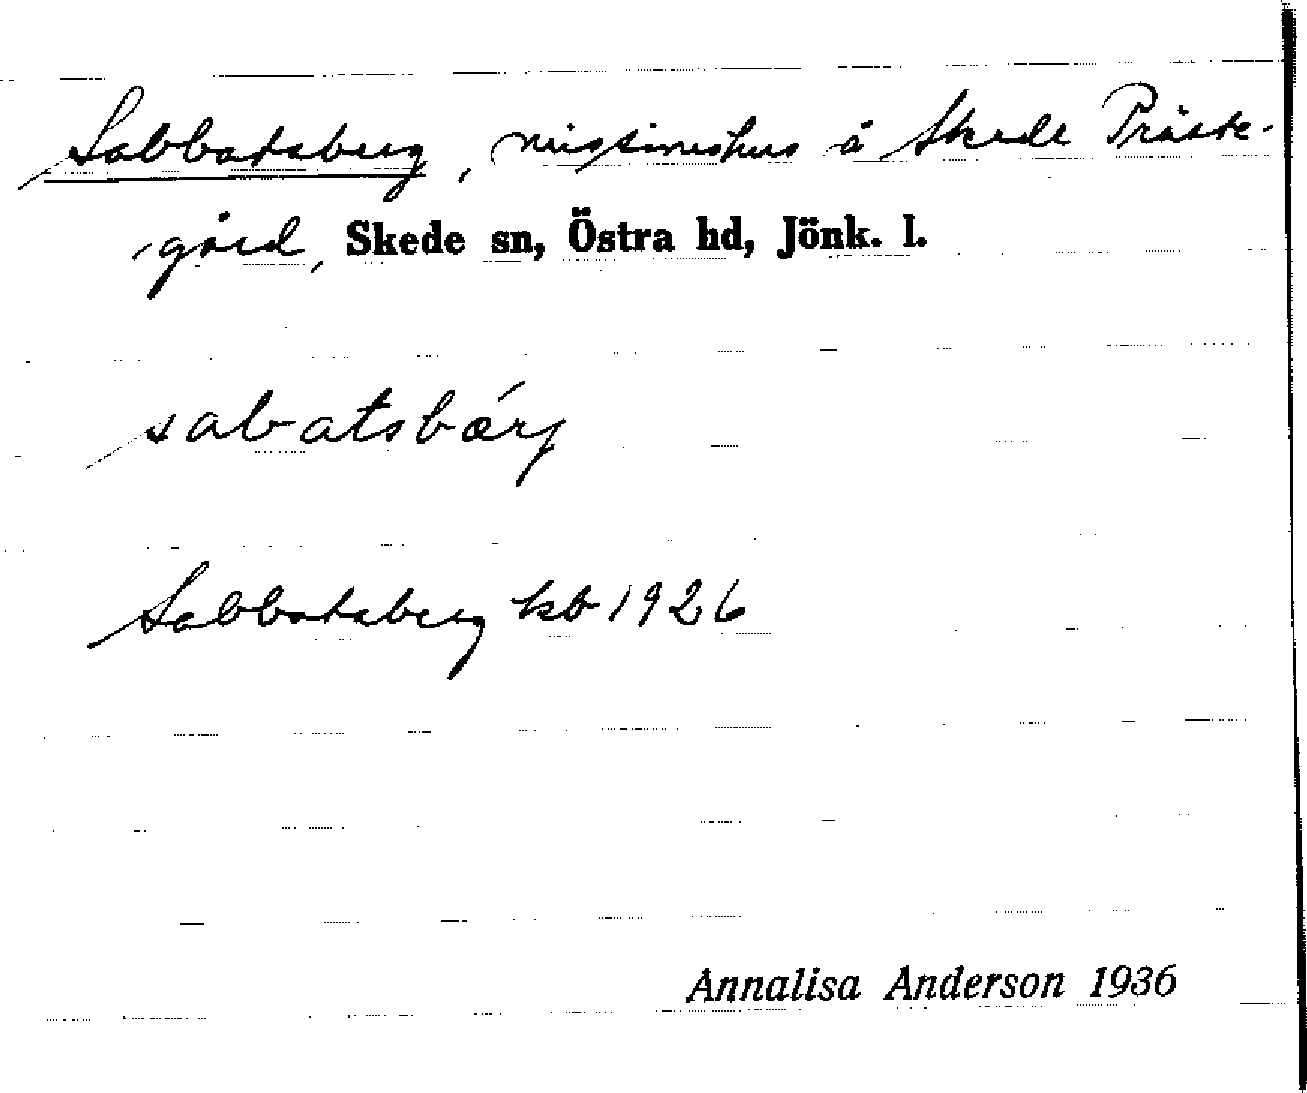 Sabbatsberg, missionshus å Skede Präste-
gård, Skede sn, Östra hd, Jönk. l.
sabatsbærj
Sabbatsberg kb 1926
Annalisa Anderson 1936